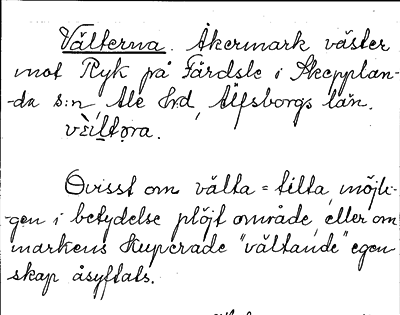 Välterna. Åkermark väster
mot Ryk på Färdsle i Skepplan-
-da s:n Ale Hd, Älfsborgs län.
Ovisst om välta = tilta, möjli-
-gen i betydelse plöjt område, eller om
markens kuperade "vältande" egen
skap åsyftats.